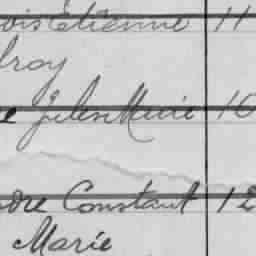 ois Etienne 11
lroy
e Jules Marie 10
dre Constant 12
Marie